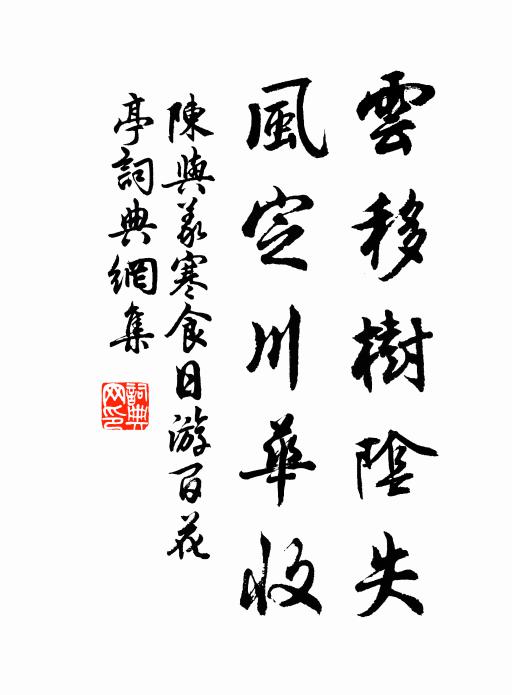 雲移樹陰失
風定川華收
陳與義寒食日游百花
亭詞典網集
詞典
网印